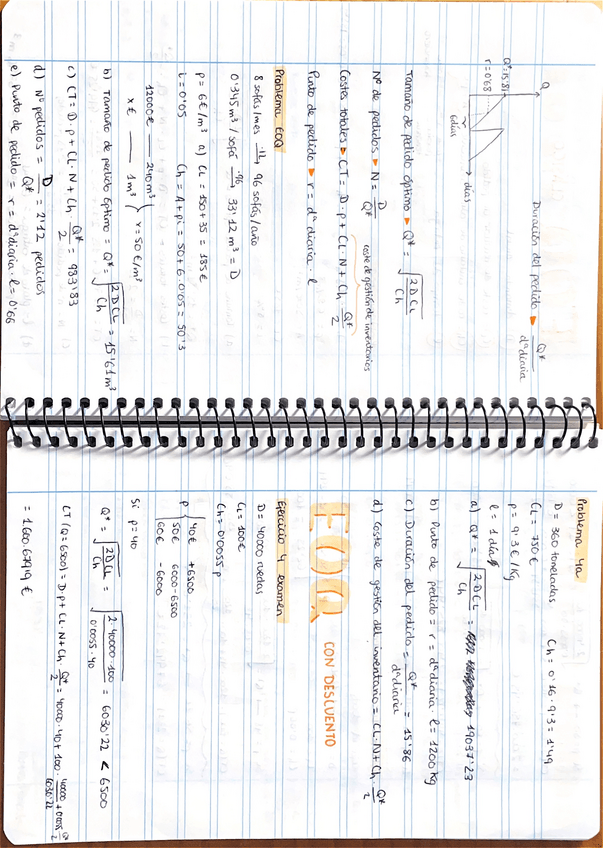 Duración del pedido ▶ Q*/dª diaria
Q
Q*=15'81
r=0'68
6días
días
Tamaño de pedido óptimo ▶ Q* = √(2DCL/Ch)
Nº de pedidos ▶ N = D/Q*
coste de gestión de inventarios
Costes totales ▶ CT = D·p + CL·N + Ch Q*/2
Punto de pedido ▶ r = dª diaria · l
Problema EOQ
8 sofás/mes ·12→ 96 sofás/año
0'345 m³/sofá ·96→ 33'12 m³ = D
p = 6€/m³ a) CL = 150+35 = 185€
i = 0'05 Ch = A+p·i = 50+6·0'05 = 50'3
12000€ —— 240m³
x € —— 1m³ } x = 50€/m³
b) Tamaño de pedido óptimo = Q* = √(2DCL/Ch) = 15'61m³
c) CT = D·p + CL·N + Ch · Q*/2 = 983'83
d) Nº pedidos = D/Q* = 2'12 pedidos
e) Punto de pedido = r = dª diaria · l = 0'66
Problema 4a
D = 360 toneladas Ch = 0'16·9'3 = 1'49
CL = 750€
p = 9'3€/kg
l = 1 día
a) Q* = √(2·DCL/Ch) = 19037'23
b) Punto de pedido = r = dª diaria · l = 1200 kg
c) Duración del pedido = Q*/dª diaria = 15'86
d) Coste de gestión del inventario = CL·N + Ch · Q*/2
EOQ CON DESCUENTO
Ejercicio 4 examen
D = 40000 ruedas
CL = 100€
Ch = 0'0055 p
p { 40€ +6500
50€ 6000-6500
60€ -6000
Si p=40
Q* = √(2DCL/Ch) = √(2·40000·100/0'0055·40) = 6030'22 < 6500
CT (Q=6500) = D·p + CL·N + Ch · Q*/2 = 40000·40 + 100 · 40000/6030'22 + 0'0055 Q*/2
= 1.600.679'19 €